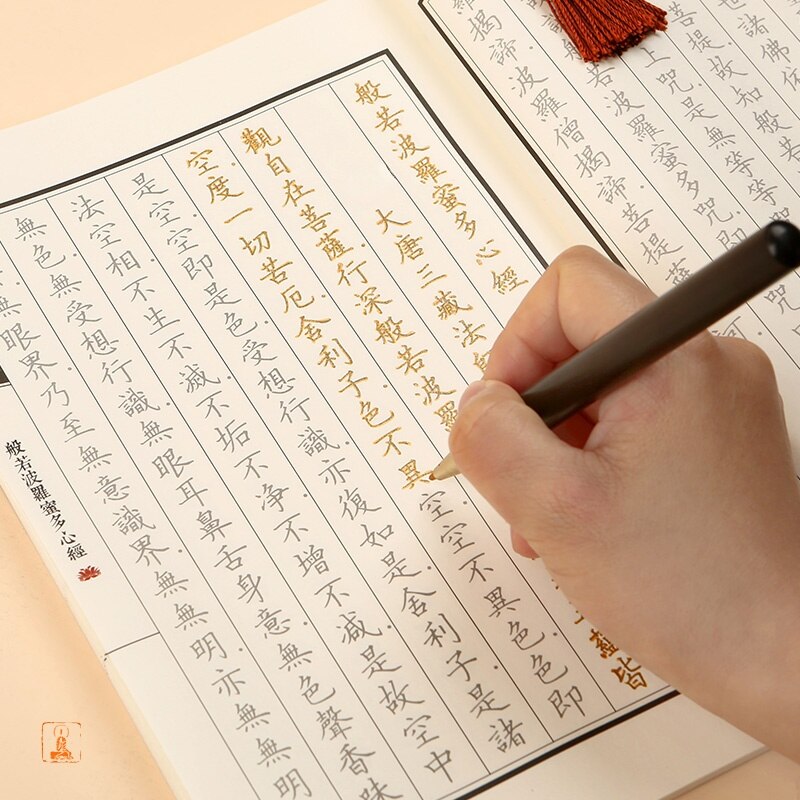 世諸佛依
菩提故知般若
上咒是無等等咒
若波羅蜜多咒.即
羅揭諦.波羅僧揭諦.菩提薩
般若波羅蜜多心經
大唐三藏法
觀自在菩薩.行深般若波羅蘊皆
空.度一切苦厄.舍利子.色不異空.空不異色.色即
是空.空即是色.受想行識.亦復如是.舍利子.是諸
法空相.不生不滅.不垢不净.不增不減.是故空中
無色.無受想行識.無眼耳鼻舌身意.無色聲香味
無眼界.乃至無意識界.無無明.亦無無明
般若波羅蜜多心經